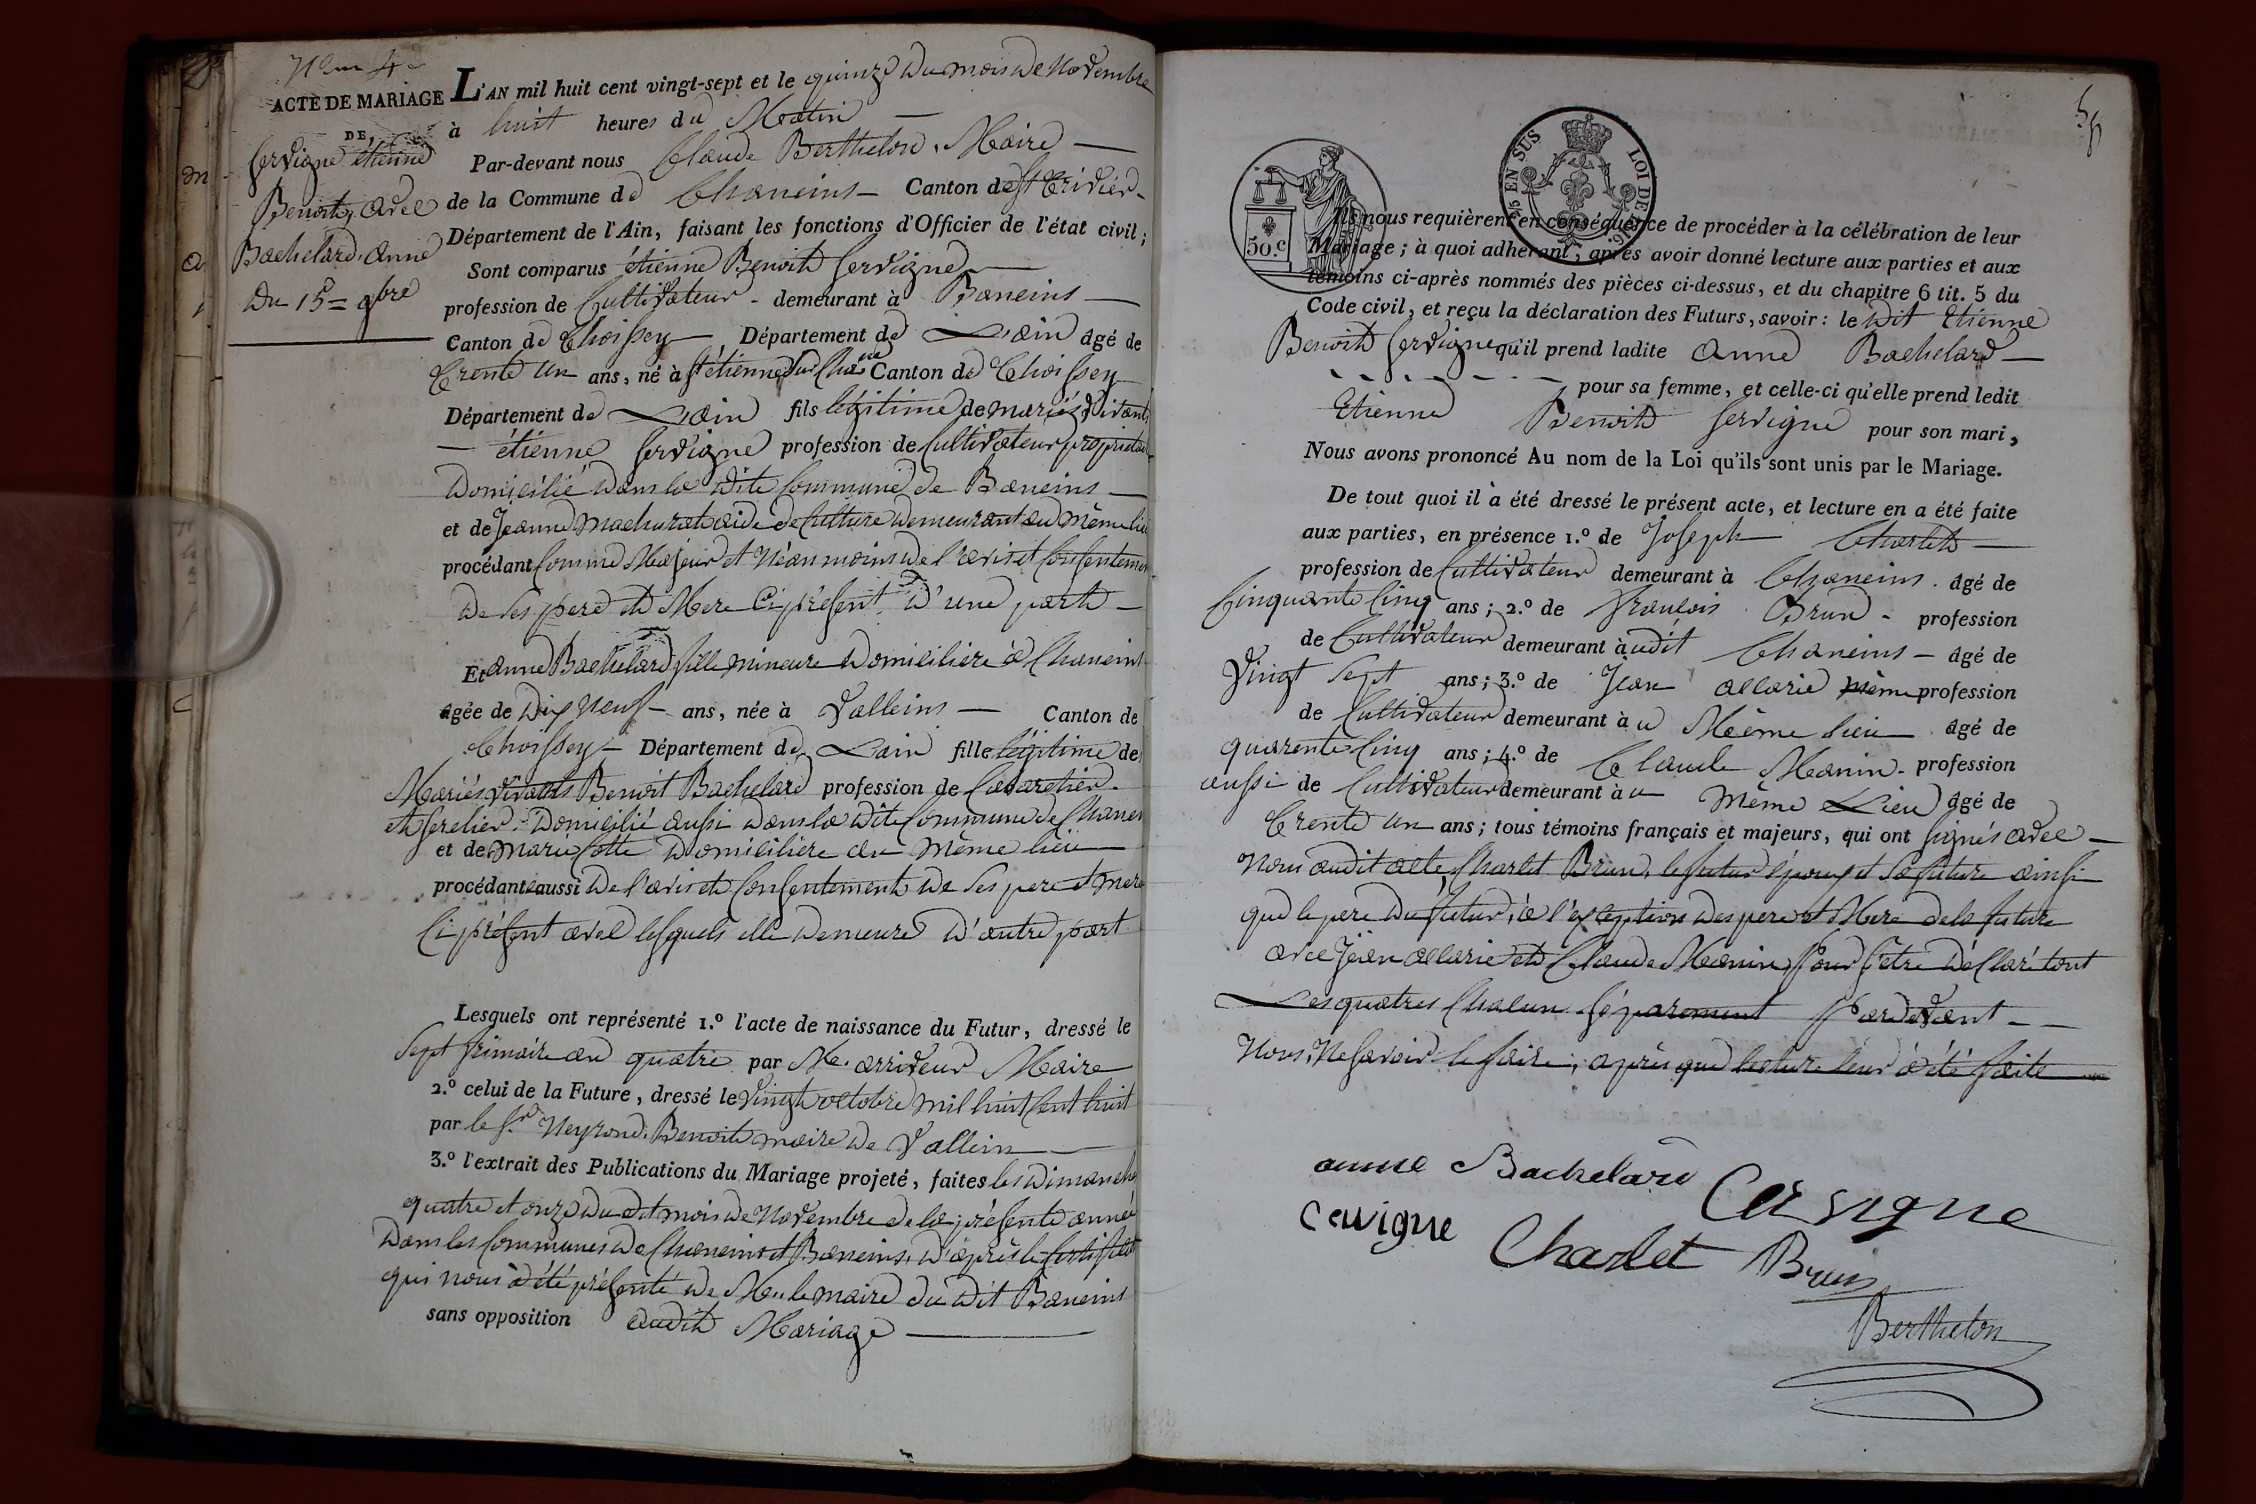 ACTE DE MARIAGE
DE
Servigne étienne
Benoit, avec
Bachelard, anne
Du 15 = 9bre
L'AN mil huit cent vingt-sept et le quinze du mois de Novembre
à huit heures du Matin
Par-devant nous Claude Berthelon, Maire
de la Commune de Chaneins Canton de St Trivier
Département de l'Ain, faisant les fonctions d'Officier de l'état civil ;
Sont comparus étienne Benoit Servigne
profession de Cultivateur demeurant à Baneins
Canton de Thoissey, Département de Lain âgé de
trente un ans, né à St étienne Sur Chne Canton de Thoissey
Département de Lain fils légitime de mariés vivants
étienne Servigne profession de Cultivateur propriétaire
domicilié dans la dite Commune de Baneins
et de Jeanne Machurat aide de Culture demeurant au même lieu
procédant Comme Majeur et Néanmoins de l'avis et Consentement
de ses pere et Mere Ci présent D'une part
Et anne Bachelard fille mineure domiciliére à Chaneins
agée de Dix Neuf ans, née à Valleins Canton de
Thoissey Département de Lain fille légitime de
Mariés vivants Benoit Bachelard profession de Cabaretier
et Serelier, Domicilié aussi dans la dite Commune de Chanein
et de Marie Cotte domiciliére au même lieu
procédante aussi De l'avis et Consentement de ses pere et mere
Ci présent avec lesquels elle demeure D'autre part
Lesquels ont représenté 1.º l'acte de naissance du Futur, dressé le
Sept frimaire an quatre par Me. arriveur Maire
2.º celui de la Future, dressé le vingt octobre mil huit Cent huit
par le Sr. Neyrond Benoit maire de Vallein
3.º l'extrait des Publications du Mariage projeté, faites les dimanches
quatre et onze du dit mois de Novembre de la présente année
Dans les Communes de Chaneins et Baneins, d'après le Certificat
qui nous a été présenté de Mr. le maire du dit Baneins
sans opposition audit Mariage
50.c
5/5 EN SUS LOI DE 1816
Ils nous requièrent en conséquence de procéder à la célébration de leur
Mariage ; à quoi adhérant, après avoir donné lecture aux parties et aux
témoins ci-après nommés des pièces ci-dessus, et du chapitre 6 tit. 5 du
Code civil, et reçu la déclaration des Futurs, savoir : le dit Etienne
Benoit Servigne qu'il prend ladite anne Bachelard
pour sa femme, et celle-ci qu'elle prend ledit
Etienne Benoit Servigne pour son mari,
Nous avons prononcé Au nom de la Loi qu'ils sont unis par le Mariage.
De tout quoi il a été dressé le présent acte, et lecture en a été faite
aux parties, en présence 1.º de Joseph Charlet
profession de Cultivateur demeurant à Chaneins. âgé de
Cinquante Cinq ans ; 2.º de francois Brun - profession
de Cultivateur demeurant à udit Chaneins - âgé de
Vingt Sept ans ; 3.º de Jean allarie même profession
de Cultivateur demeurant à u Même lieu âgé de
quarente Cinq ans ; 4.º de Claude Manin - profession
aussi de Cultivateur demeurant à u même Lieu âgé de
trente un ans ; tous témoins français et majeurs, qui ont signés avec
Nous audit acte, Charlet Brun, le futur époux et Sa future ainsi
que le pere Du futur, à l'exception des pere et Mere de la future
avec Jean allarie et Claude Manin, pour S'être déClaré tout
Les quatres Chacun Séparement Pardevant
Nous, Ne Savoir le faire ; après que lecture leur à été faite
anne Bachelard
Cervigne
Cervigne
Charlet
Brun
Berthelon